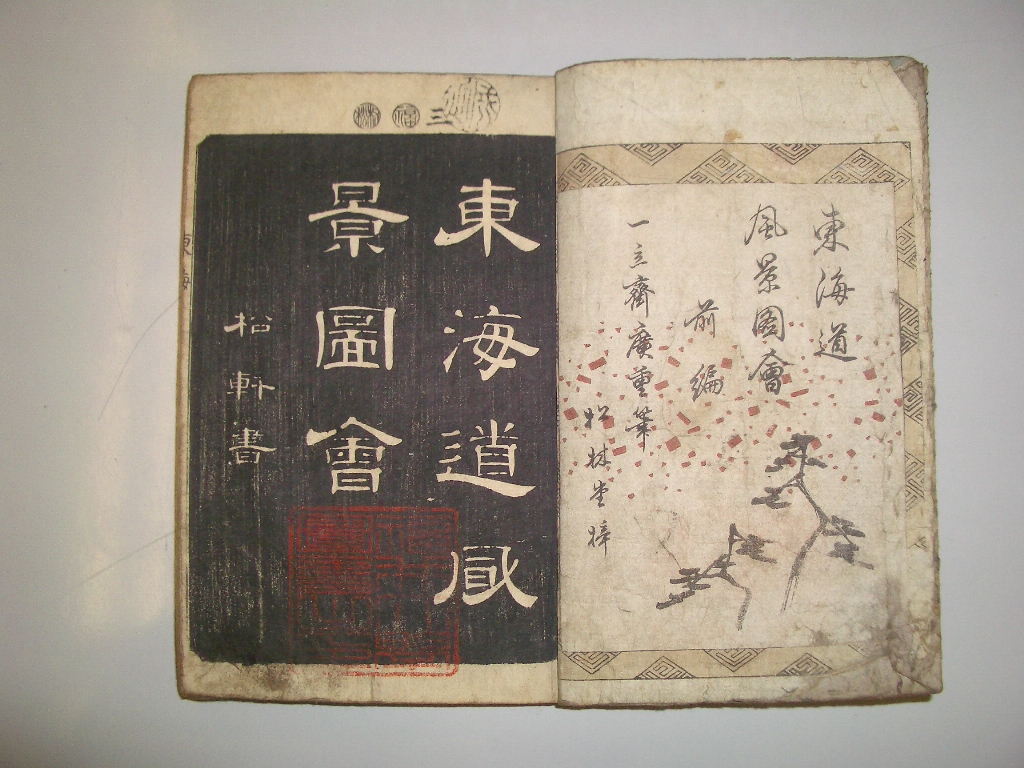 東海道
風景圖會
前編
一立齋廣重筆
松林堂梓
三
東海道風
景圖會
松軒書
東海